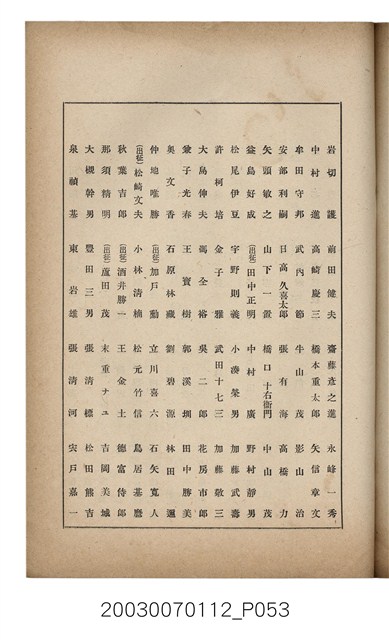 岩切護 前田健夫 齋藤彦之進 永峰一秀
中村進 高崎慶三 橋本重太郎 矢信章文
牟田守邦 武內節 牛山茂 影山治
安部利嗣 日高久喜太郎 張有海 高橋力
矢頭敏之 山下一置 橋口十右衛門 中山茂
益島好成 (出征)田中正明 中村廣 野村靜男
松尾伊豆 宇野則義 小湊榮男 加藤武壽
許柯培 金子雅 武田十七三 加藤敬三
大島伸夫 馮全裕 吳二郎 花房市郎
兼子光春 王寶樹 郭溪圳 田中勝美
奧文香 石原林藏 劉碧源 林田邏
仲地唯勝 (出征)加戶勳 立川喜六 石矢寬人
(出征)松崎文夫 小林清楠 松元竹信 鳥居基麿
秋葉吉郎 (出征)酒井勝一 王金土 德富侍郎
那須精明 (出征)蘆田茂 末重ナユ 吉岡美城
大槻幹男 豐田三男 張清標 松田熊吉
泉禎基 東岩雄 張清河 宍戶嘉一
20030070112_P053